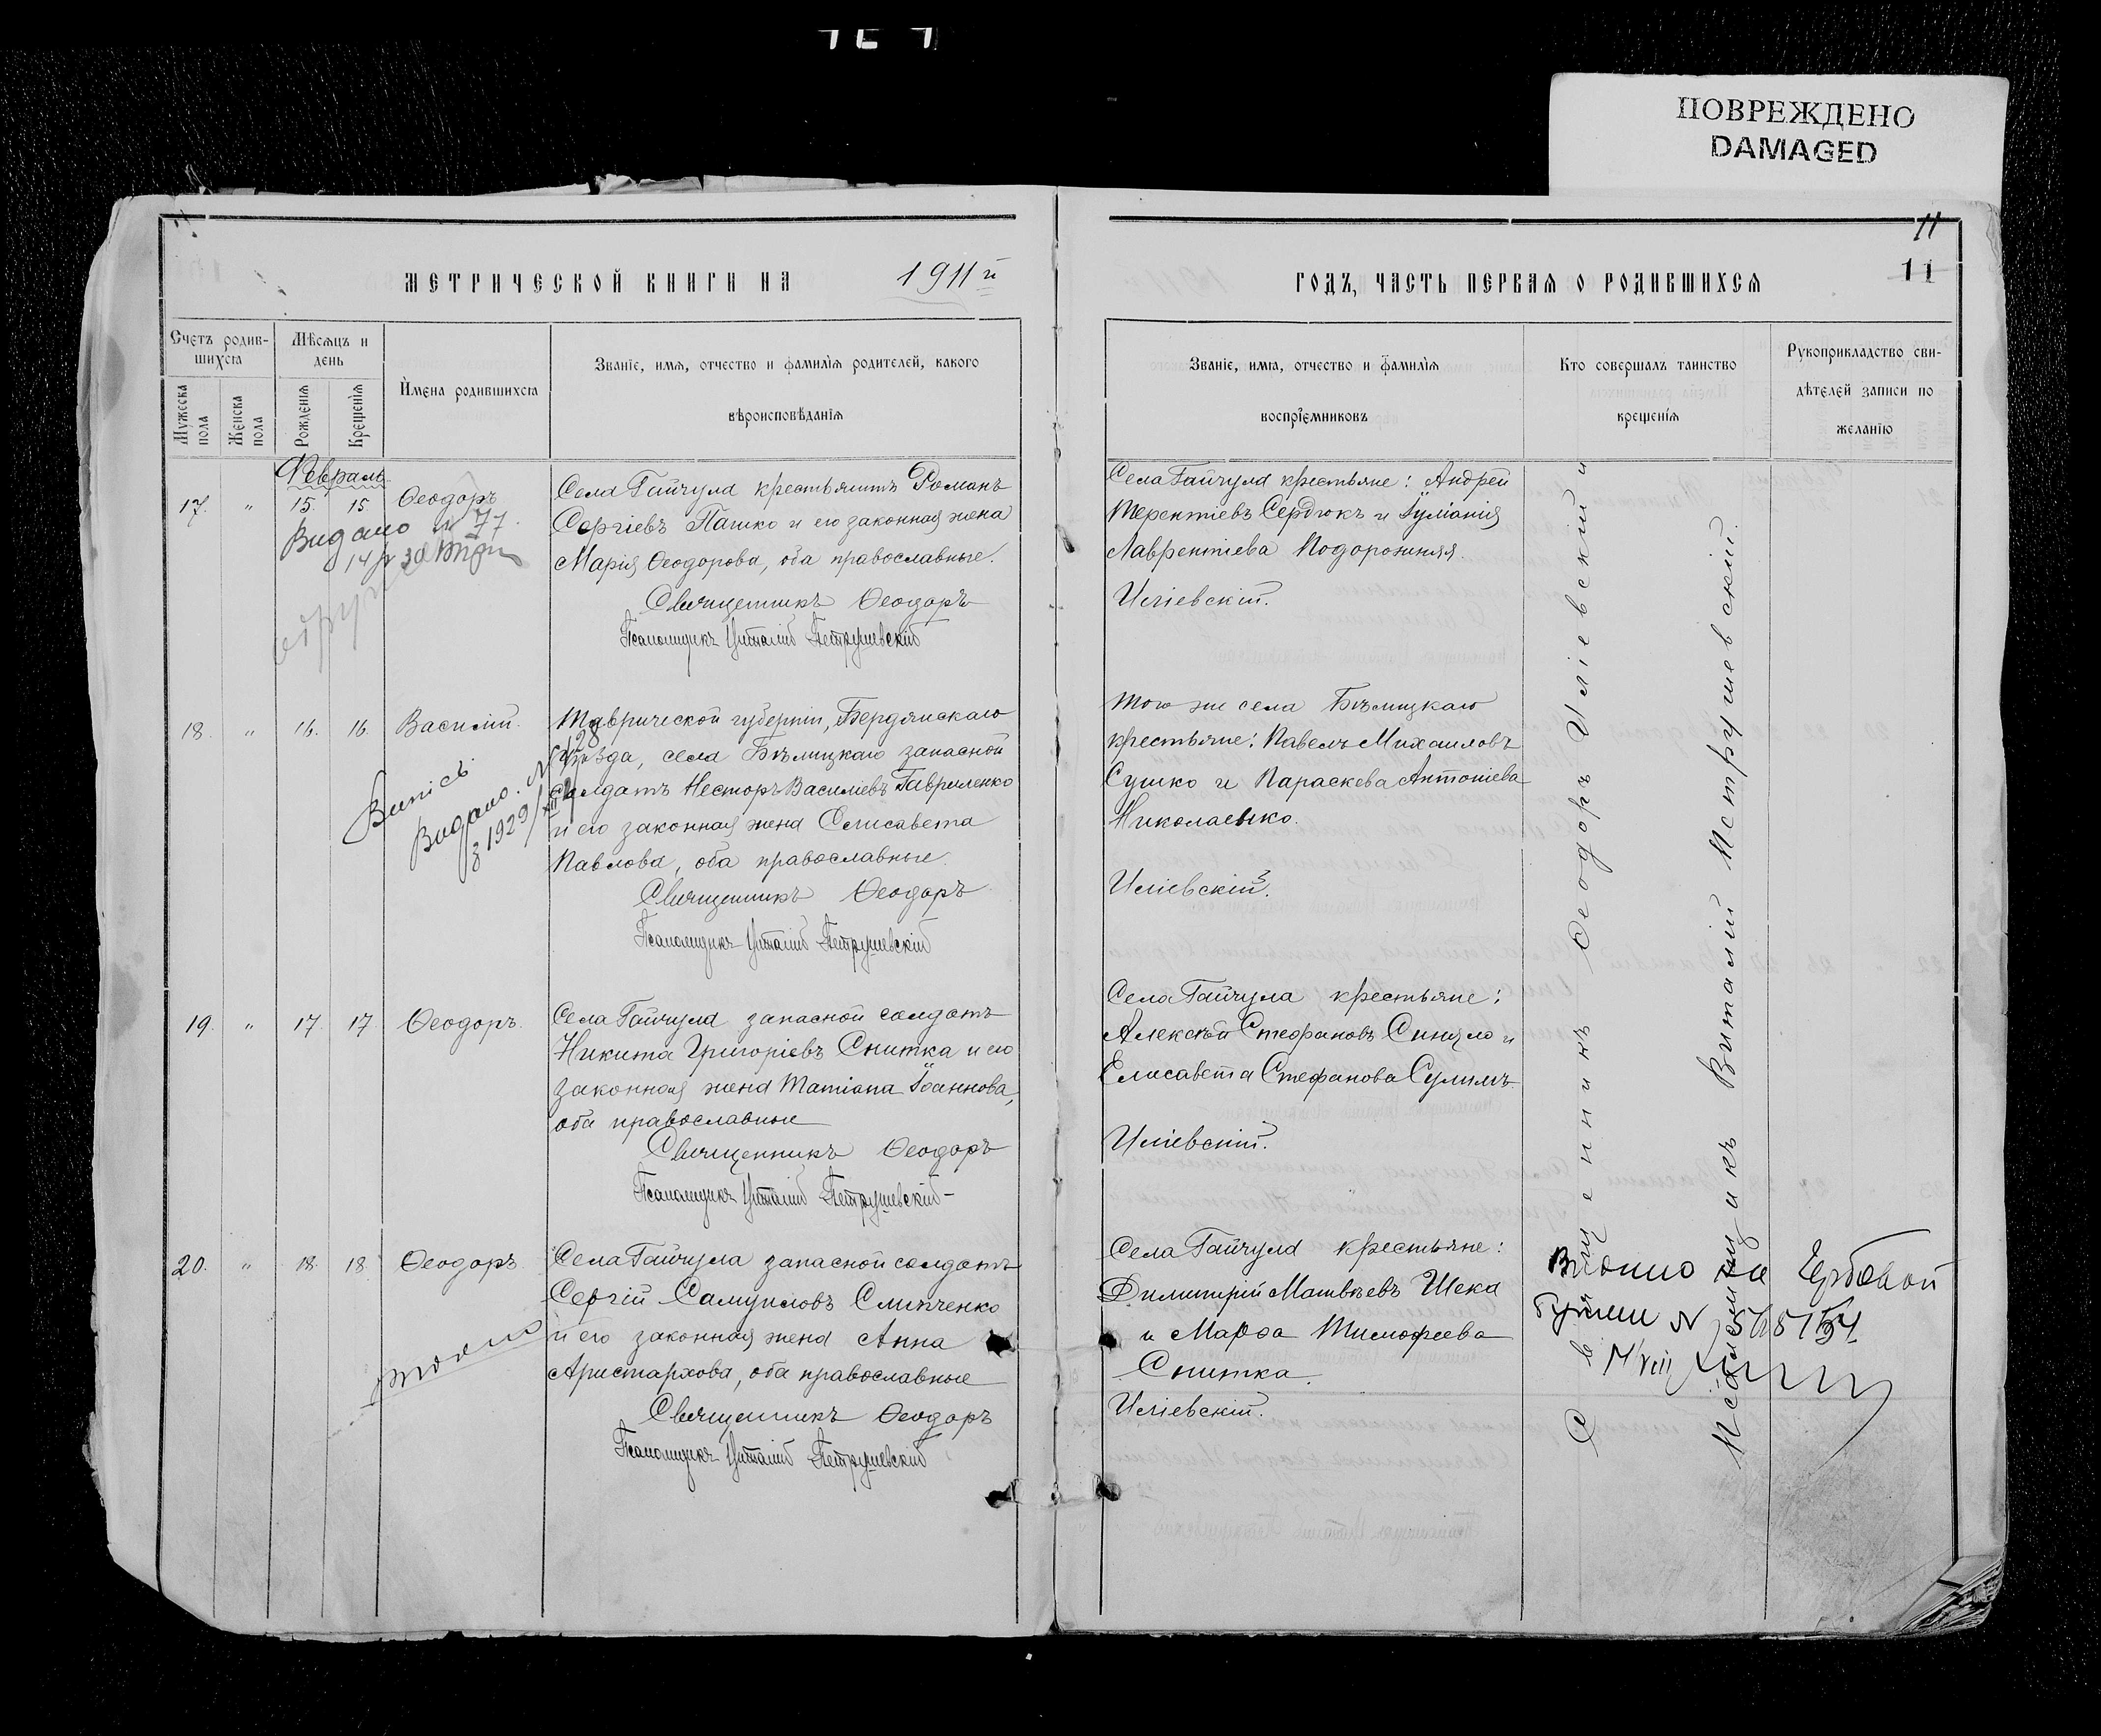 ПОВРЕЖДЕНО
DAMAGED
11
11
МЕТРИЧЕСКОЙ КНИГИ НА 1911 й
ГОДЪ, ЧАСТЬ ПЕРВАЯ О РОДИВШИХСЯ
Счетъ родив-
шихся
Мужеска пола
Женска пола
Мѣсяцъ и
день
Рожденія
Крещенія
Имена родившихся
Званіе, имя, отчество и фамилія родителей, какого
вѣроисповѣданія
Званіе, имя, отчество и фамилія
воспріемниковъ
Кто совершалъ таинство
крещенія
Рукоприкладство сви-
дѣтелей записи по
желанію
Февраль
17. " 15. 15. Ѳеодоръ
Видано 77
Села Гайчула крестьянинъ Романъ
Сергіевъ Пашко и его законная жена
Марія Ѳеодорова, оба православные.
Священникъ Ѳеодоръ
Псаломщикъ Виталій Петрушевскій
Села Гайчула крестьяне: Андрей
Терентіевъ Сердюкъ и Іуліанія
Лаврентіева Подорожняя.
Иліевскій.
18. " 16. 16. Василій.
Випісь
Видано. N 128
з 1929
Таврической губерніи, Бердянскаго
уѣзда, села Бѣлицкаго запасной
солдатъ Несторъ Василіевъ Гавриленко
и его законная жена Елисавета
Павлова, оба православные.
Священникъ Ѳеодоръ
Псаломщикъ Виталій Петрушевскій
Того же села Бѣлицкаго
крестьяне: Павелъ Михаиловъ
Сушко и Параскева Антоніева
Николаенко.
Иліевскій.
19. " 17. 17. Ѳеодоръ.
Села Гайчула запасной солдатъ
Никита Григоріевъ Снитка и его
законная жена Татіана Іоаннова,
оба православные
Священникъ Ѳеодоръ
Псаломщикъ Виталій Петрушевскій
Села Гайчула крестьяне:
Алексѣй Стефановъ Сингло и
Елисавета Стефанова Сулимъ
Иліевскій.
20. " 18. 18. Ѳеодоръ
Села Гайчула запасной солдатъ
Сергій Самуиловъ Слипченко
и его законная жена Анна
Аристархова, оба православные
Священникъ Ѳеодоръ
Псаломщикъ Виталій Петрушевскій
Села Гайчула крестьяне:
Димитрій Матвѣевъ Шека
и Марѳа Тимофеева
Снитка.
Иліевскій.
Священникъ Ѳеодоръ Иліевскій и
Псаломщикъ Виталій Петрушевскій.